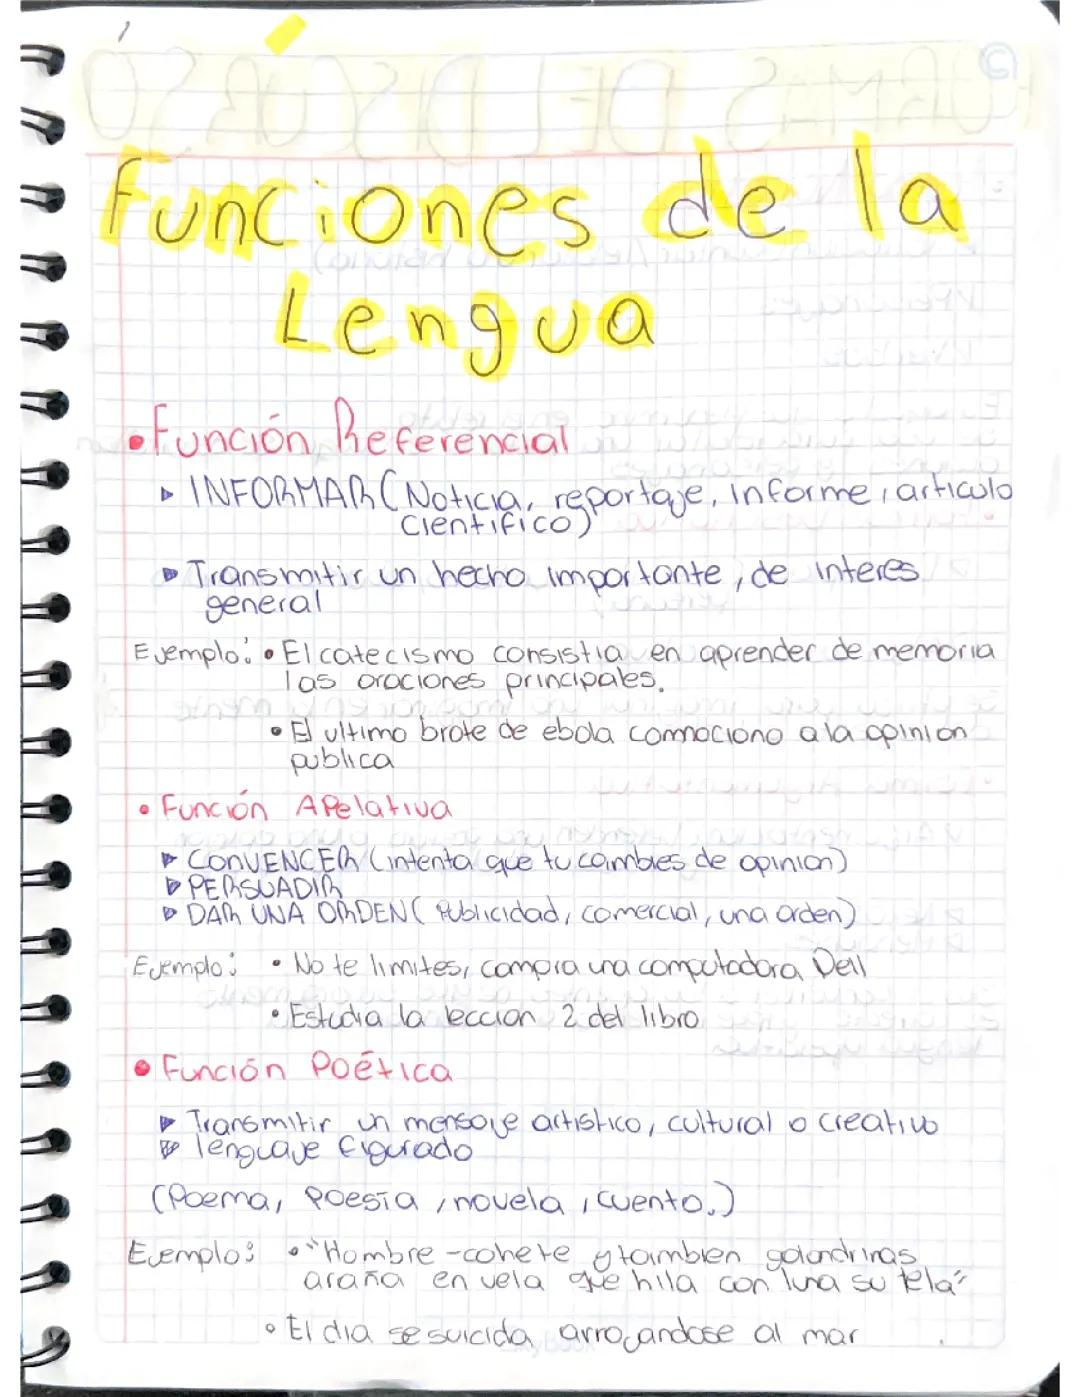 Funciones de la
Lengua
• Función Referencial
▸ INFORMAR (Noticia, reportaje, informe, articulo
cientifico)
▸ Transmitir un hecho importante, de interes
general
Ejemplo: • El catecismo consistia en aprender de memoria
las oraciones principales.
• El ultimo brote de ebola conmociono a la opinion
publica
• Función Apelativa
▸ CONVENCER (intenta que tu cambies de opinion)
▸ PERSUADIR
▸ DAR UNA ORDEN (Publicidad, comercial, una orden)
Ejemplo: • No te limites, compra una computadora Dell
• Estudia la leccion 2 del libro
• Función Poética
▸ Transmitir un mensaje artistico, cultural o creativo
▸ lenguaje figurado
(Poema, Poesía, novela, cuento.)
Ejemplo: • "Hombre-cohete y tambien golondrinas
araña en vela que hila con luna su tela"
• El dia se suicida arrojandose al mar